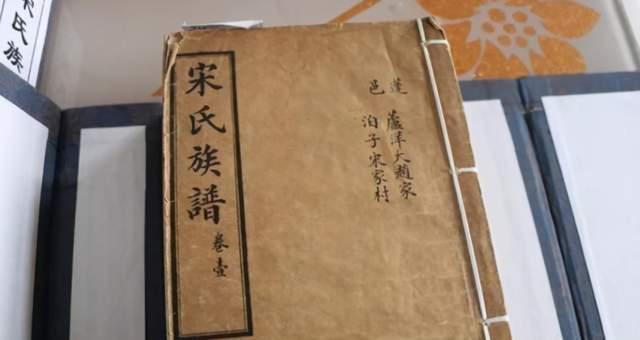 蓬邑
蘆洋大趙家
泊子宋家村
宋氏族譜
卷壹
氏族